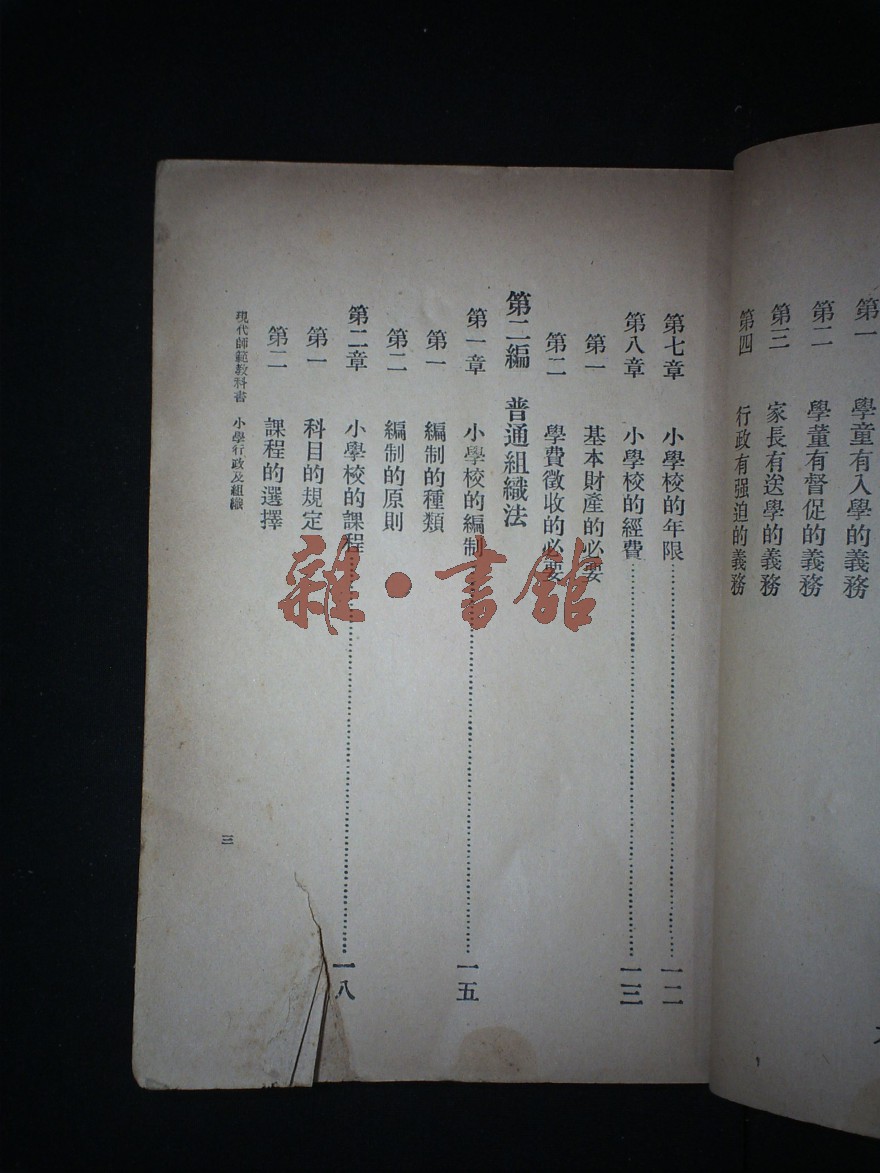 第一 學童有入學的義務
第二 學董有督促的義務
第三 家長有送學的義務
第四 行政有强迫的義務
第七章 小學校的年限……一二
第八章 小學校的經費……一三
第一 基本財產的必要
第二 學費徵收的必要
第二編 普通組織法
第一章 小學校的編制……一五
第一 編制的種類
第二 編制的原則
第二章 小學校的課程……一八
第一 科目的規定
第二 課程的選擇
現代師範教科書 小學行政及組織 三
雜·書館